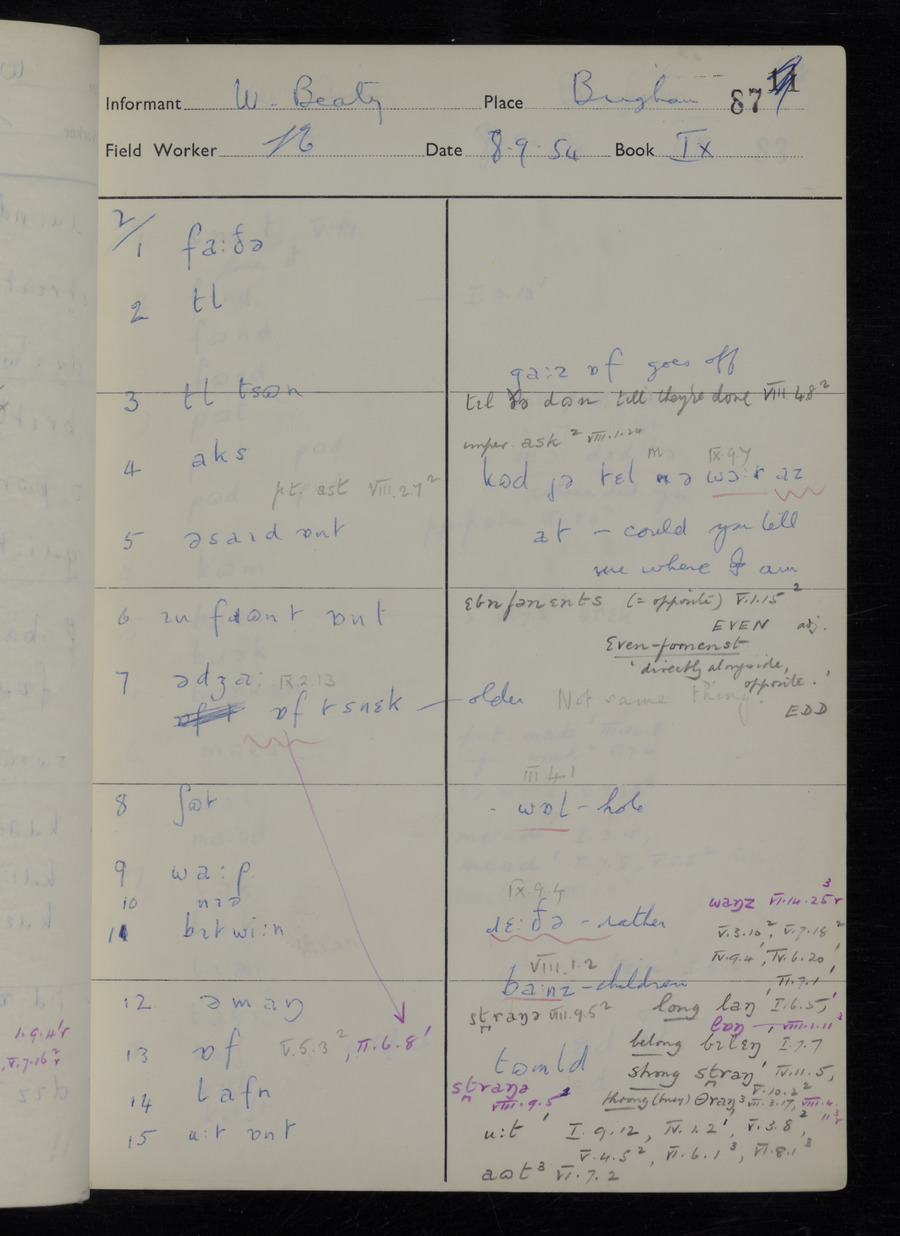 Informant W. Beaty Place Brigham 87 11
Field Worker Date 8.9.54 Book IX
2/1 fa:ðə
2 tl
3 tl tsʊn
4 aks
pt. ast VIII.2.7²
5 əsaɪd ɒnt
6 ɪn fɹʊnt ɒnt
7 ədʒa: IX.2.13
ɒf tsnɛk — older
8 ʃɒt
9 wa:p
10 nɪə
11 bɪtwi:n
12 əmaŋ
13 ɒf V.5.3², VI.6.8¹
14 lafn
15 u:t ɒnt
ga:z ɒf goes off
till they're done VIII.4.8²
imper. ask² VIII.1.24
IX.9.7
kʊd jə tɛl mə wɔ:r az
at – could you tell
me where I am
ɛbmfənɛnts (= opposite) V.1.15²
EVEN adj.
Even-fornenst
'directly alongside,
opposite.'
EDD
Not same thing.
III.4.1
wɒl – hole
IX.9.4
ɹɛ:ðə – rather
waŋz VI.14.25³
V.3.10², V.7.18²
IV.9.4¹, IV.6.20¹
VIII.1.2
ba:nz – children
VI.7.1¹
straŋə VIII.9.5² long laŋ¹ I.6.5¹
laŋ VIII.1.11³
belong bɪlɛŋ I.7.7
tʊuld strong straŋ¹ IV.11.5,
V.10.2²
straŋə
VIII.9.5²
throng (busy) θraŋ³ VIII.3.17, VIII.4.
11³
u:t¹ I.9.12, IV.1.2¹, V.3.8²,
V.4.5², VI.6.1³, VI.8.1³
aʊt³ VI.7.2
1.9.4¹r
V.7.16²r